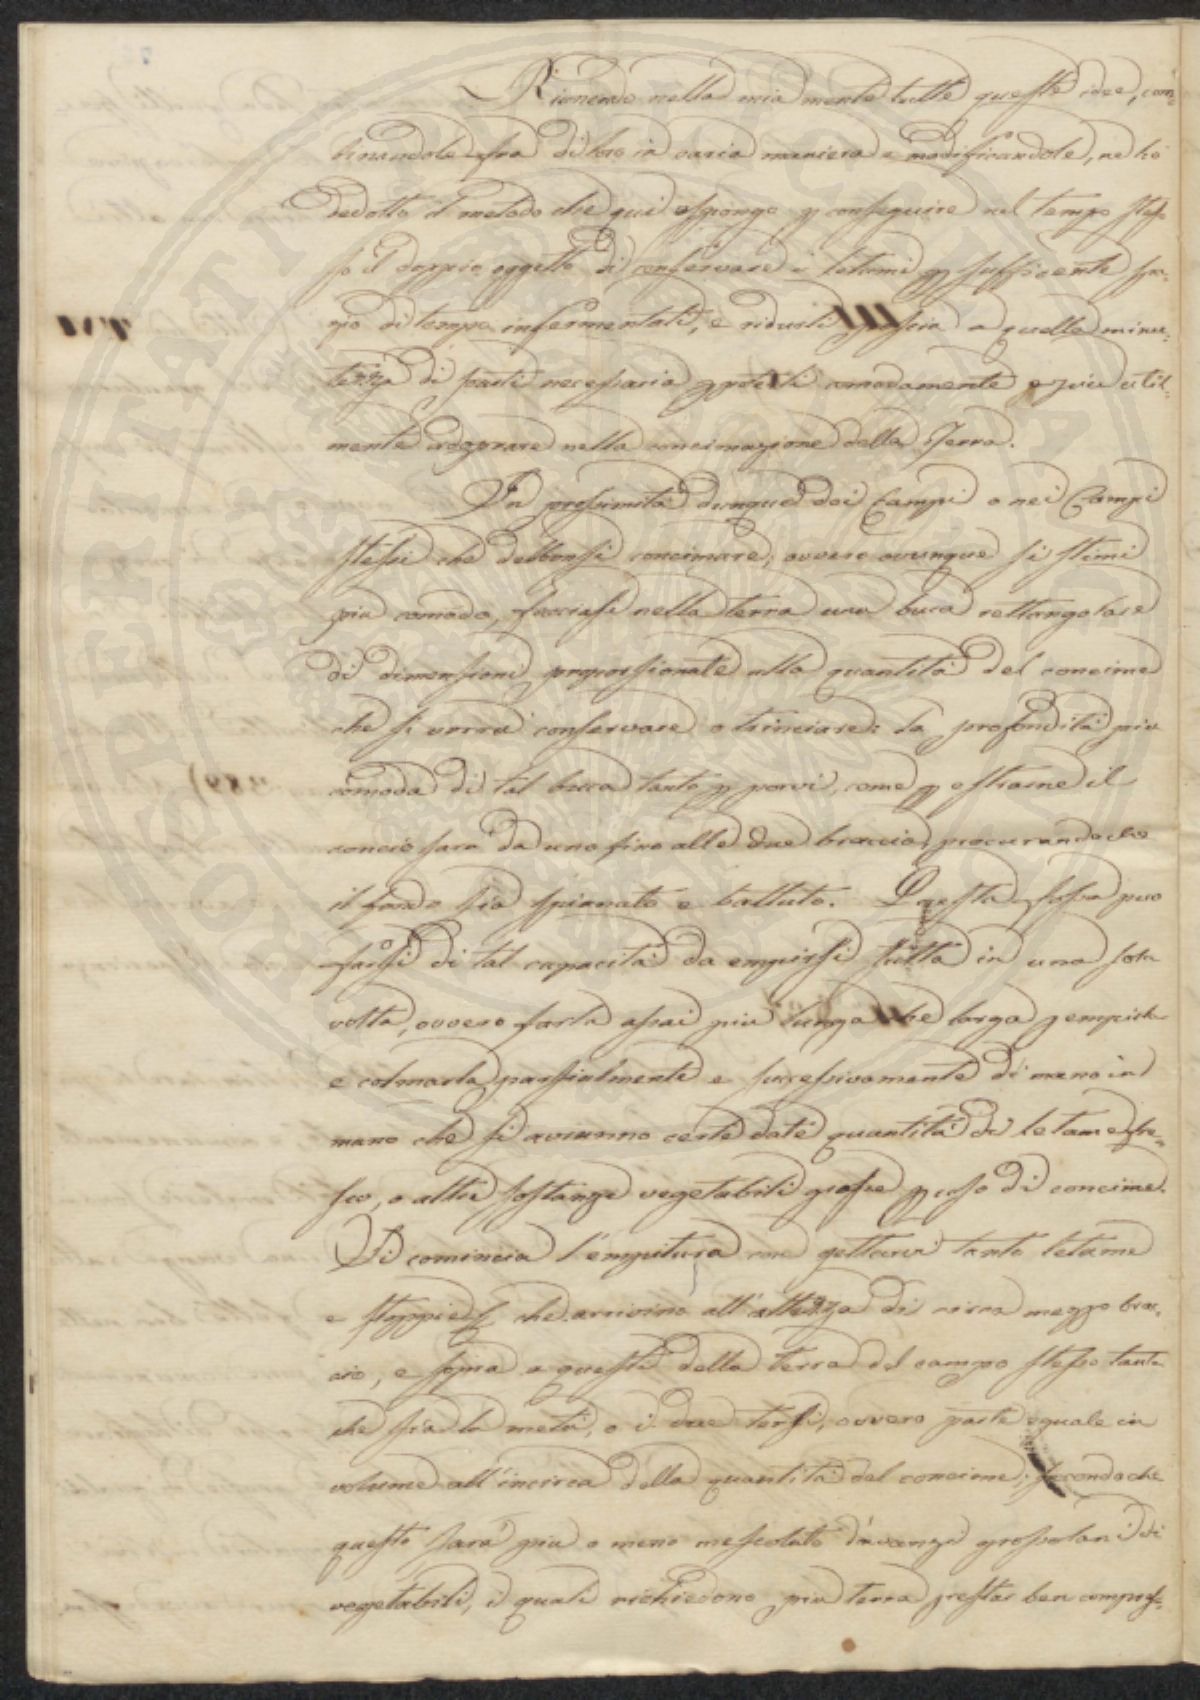 Riunendo nella mia mente tutte queste idee, com=
binandole fra di loro in varia maniera e modificandole, ne hò
dedotto il metodo che qui espongo p conseguire nel tempo stes
so il doppio oggetto di conservare i letami p sufficiente spa=
zio di tempo infermentati, e ridurli poscia a quella minu=
tezza di parti necessaria p poterli comodamente e più util=
mente adoprare nella concimazione della Terra.
In prossimità dunque dei Campi o nei Campi
stessi che debbonsi concimare, ovvero ovunque si stimi
più comodo, facciasi nella terra una buca rettangolare
di dimensioni proporzionate alla quantità del concime
che si vorrà conservare o trinciare: la profondità più
comoda di tal buca tanto p porvi, come p estrarne il
concio sarà da uno fino alle due braccia, procurando che
il fondo sia spianato e battuto. Questa fossa può
farsi di tal capacità da empirsi tutta in una sola
volta, ovvero farla assai più lunga che larga p empirla
e colmarla parzialmente e successivamente di mano in
mano che si avranno certe date quantità di letame fre=
sco, o altre sostanze vegetabili grosse p uso di concime.
Si comincia l'empitura con gettarvi tanto letame
e stoppie che arrivino all'altezza di circa mezzo brac=
cio, e sopra a queste della terra del campo stesso tanta
che sia la metà, o i due terzi, ovvero parte eguale in
volume all'incirca della quantità del concime; secondo che
questo sarà più o meno mescolato d'avanzi grossolani di
vegetabili, i quali richiedono più terra p restar ben compres=